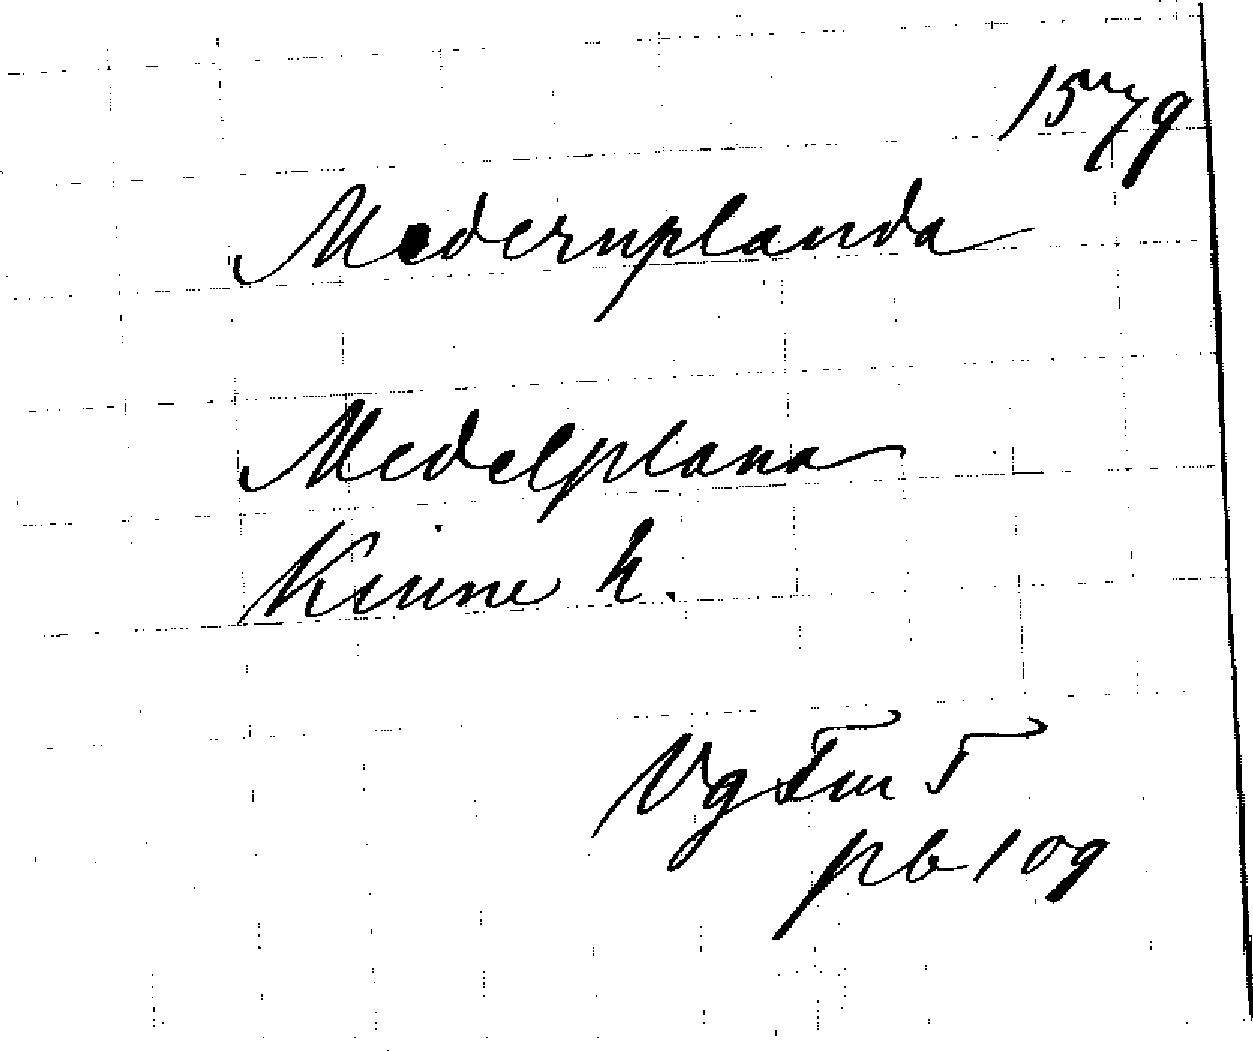 1579
Medernplanda
Medelplana
Kinne h.
Vg Tm 5
pb 109